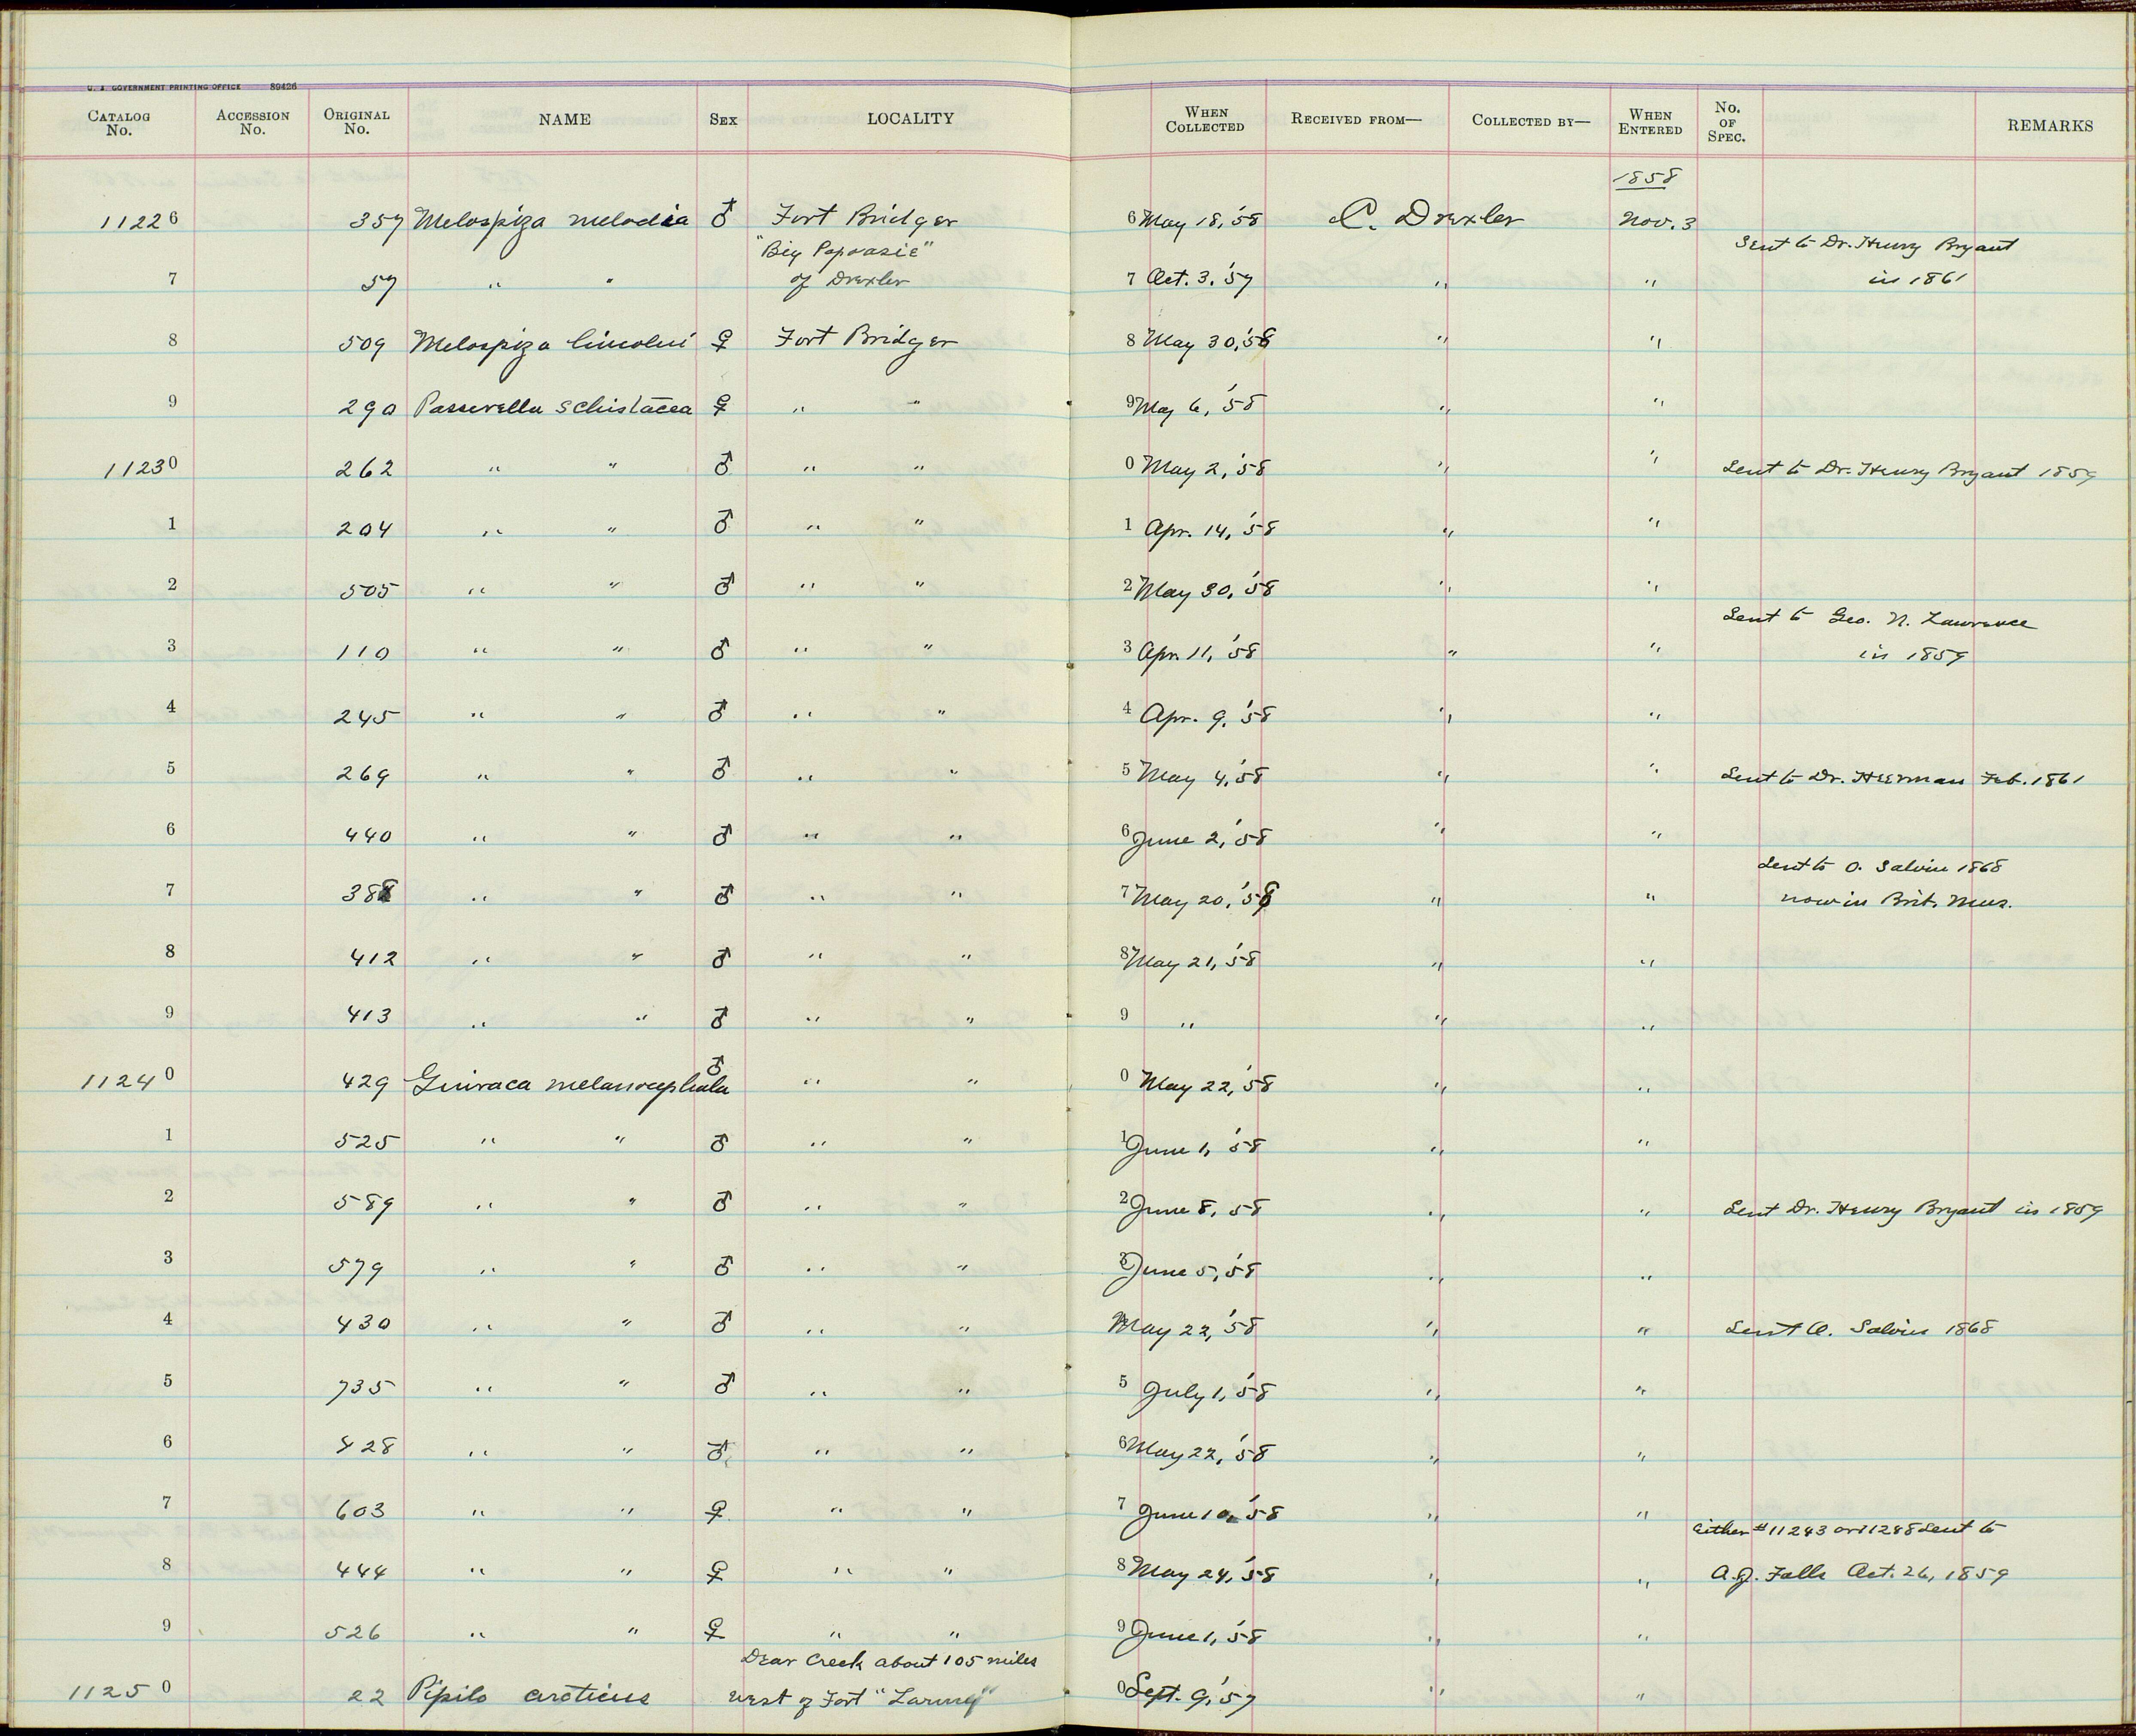 U. S. GOVERNMENT PRINTING OFFICE 89426
CATALOG No. ACCESSION No. ORIGINAL No. NAME SEX LOCALITY WHEN COLLECTED RECEIVED FROM— COLLECTED BY— WHEN ENTERED No. OF SPEC. REMARKS
1858
11226 357 Melospiza melodia ♂ Fort Bridger 6 May 18, '58 C. Drexler Nov. 3
"Big Popoasie" Sent to Dr. Henry Bryant
7 57 " " of Drexler 7 Oct. 3. '57 " " in 1861
8 509 Melospiza lincolni ♀ Fort Bridger 8 May 30, '58 " "
9 290 Passerella schistacea ♀ " " 9 May 6, '58 " "
11230 262 " " ♂ " " 0 May 2, '58 " " Sent to Dr. Henry Bryant 1859
1 204 " " ♂ " " 1 Apr. 14, '58 " "
2 505 " " ♂ " " 2 May 30, '58 " "
Sent to Geo. N. Lawrence
3 110 " " ♂ " " 3 Apr. 11, '58 " " in 1859
4 245 " " ♂ " " 4 Apr. 9, '58 " "
5 269 " " ♂ " " 5 May 4, '58 " " Sent to Dr. Heerman Feb. 1861
6 440 " " ♂ " " 6 June 2, '58 " "
Sent to O. Salvin 1868
7 388 " " ♂ " " 7 May 20, '58 " " now in Brit. Mus.
8 412 " " ♂ " " 8 May 21, '58 " "
9 413 " " ♂ " " 9 " " "
11240 429 Guiraca melanocephala ♂ " " 0 May 22, '58 " "
1 525 " " ♂ " " 1 June 1, '58 " "
2 589 " " ♂ " " 2 June 8, 58 " " Sent Dr. Henry Bryant in 1859
3 579 " " ♂ " " 3 June 5, '58 " "
4 430 " " ♂ " " May 22, '58 " " Sent O. Salvin 1868
5 735 " " ♂ " " 5 July 1, '58 " "
6 428 " " ♂ " " 6 May 22, '58 " "
7 603 " " ♀ " " 7 June 10, '58 " "
Either #11243 or 11248 sent to
8 444 " " ♀ " " 8 May 24, '58 " " A.J. Falls Oct. 26, 1859
9 526 " " ♀ " " 9 June 1, '58 " "
Dear Creek about 105 miles
11250 22 Pipilo arcticus west of Fort "Larmy" 0 Sept. 9, '57 " "